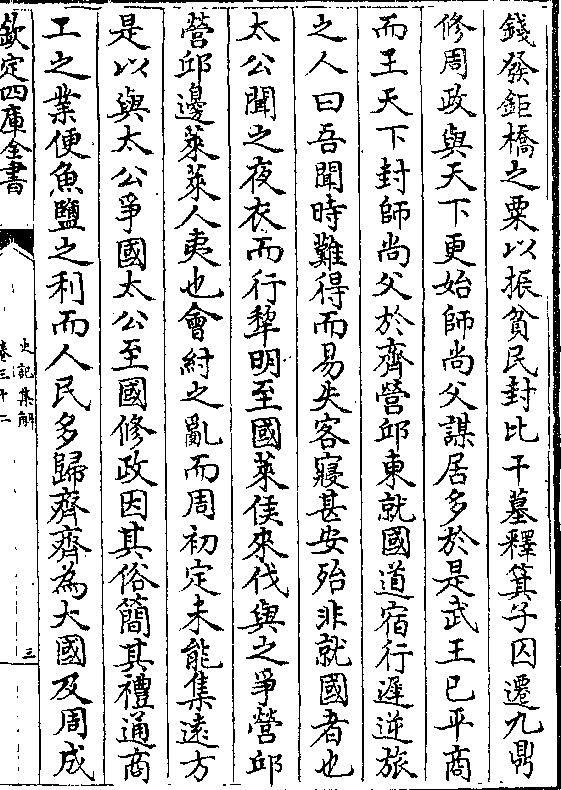 錢發鉅橋之粟以振貧民封比干墓釋箕子囚遷九鼎
修周政與天下更始師尚父謀居多於是武王已平商
而王天下封師尚父於齊營邱東就國道宿行遲逆旅
之人曰吾聞時難得而易失客寢甚安殆非就國者也
太公聞之夜衣而行犂明至國萊侯來伐與之爭營邱
營邱邊萊萊人夷也會紂之亂而周初定未能集遠方
是以與太公爭國太公至國修政因其俗簡其禮通商
工之業便魚鹽之利而人民多歸齊齊為大國及周成
欽定四庫全書
史記集解
卷三十二
三